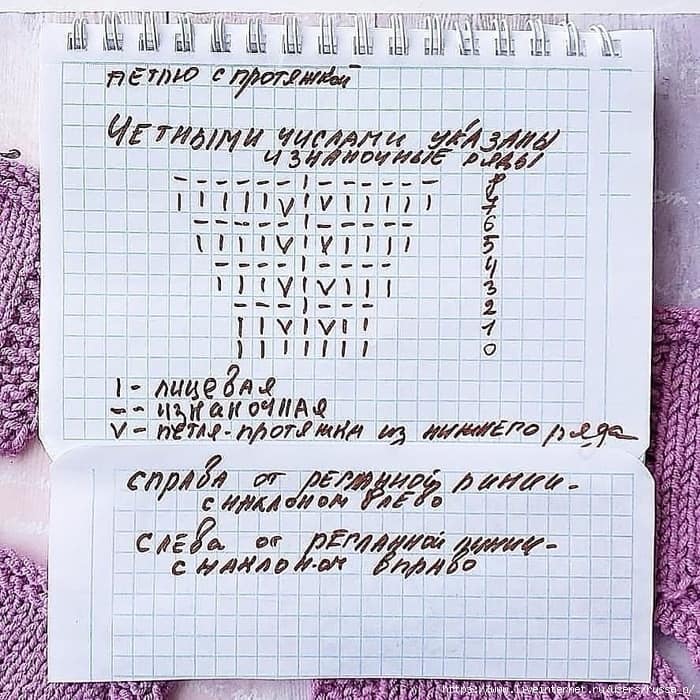 петлю с протяжкой
Четными числами указаны
изнаночные ряды
- - - - - - I - - - - - - 8
I I I I I V I V I I I I I 7
- - - - - I - - - - - 6
I I I I V I V I I I I 5
- - - - I - - - - 4
I I I V I V I I I 3
- - - I - - - 2
I I V I V I I 1
I I I I I I I 0
I - лицевая
- - изнаночная
V - петля-протяжка из нижнего ряда
справа от регланной линии -
с наклоном влево
слева от регланной линии -
с наклоном вправо